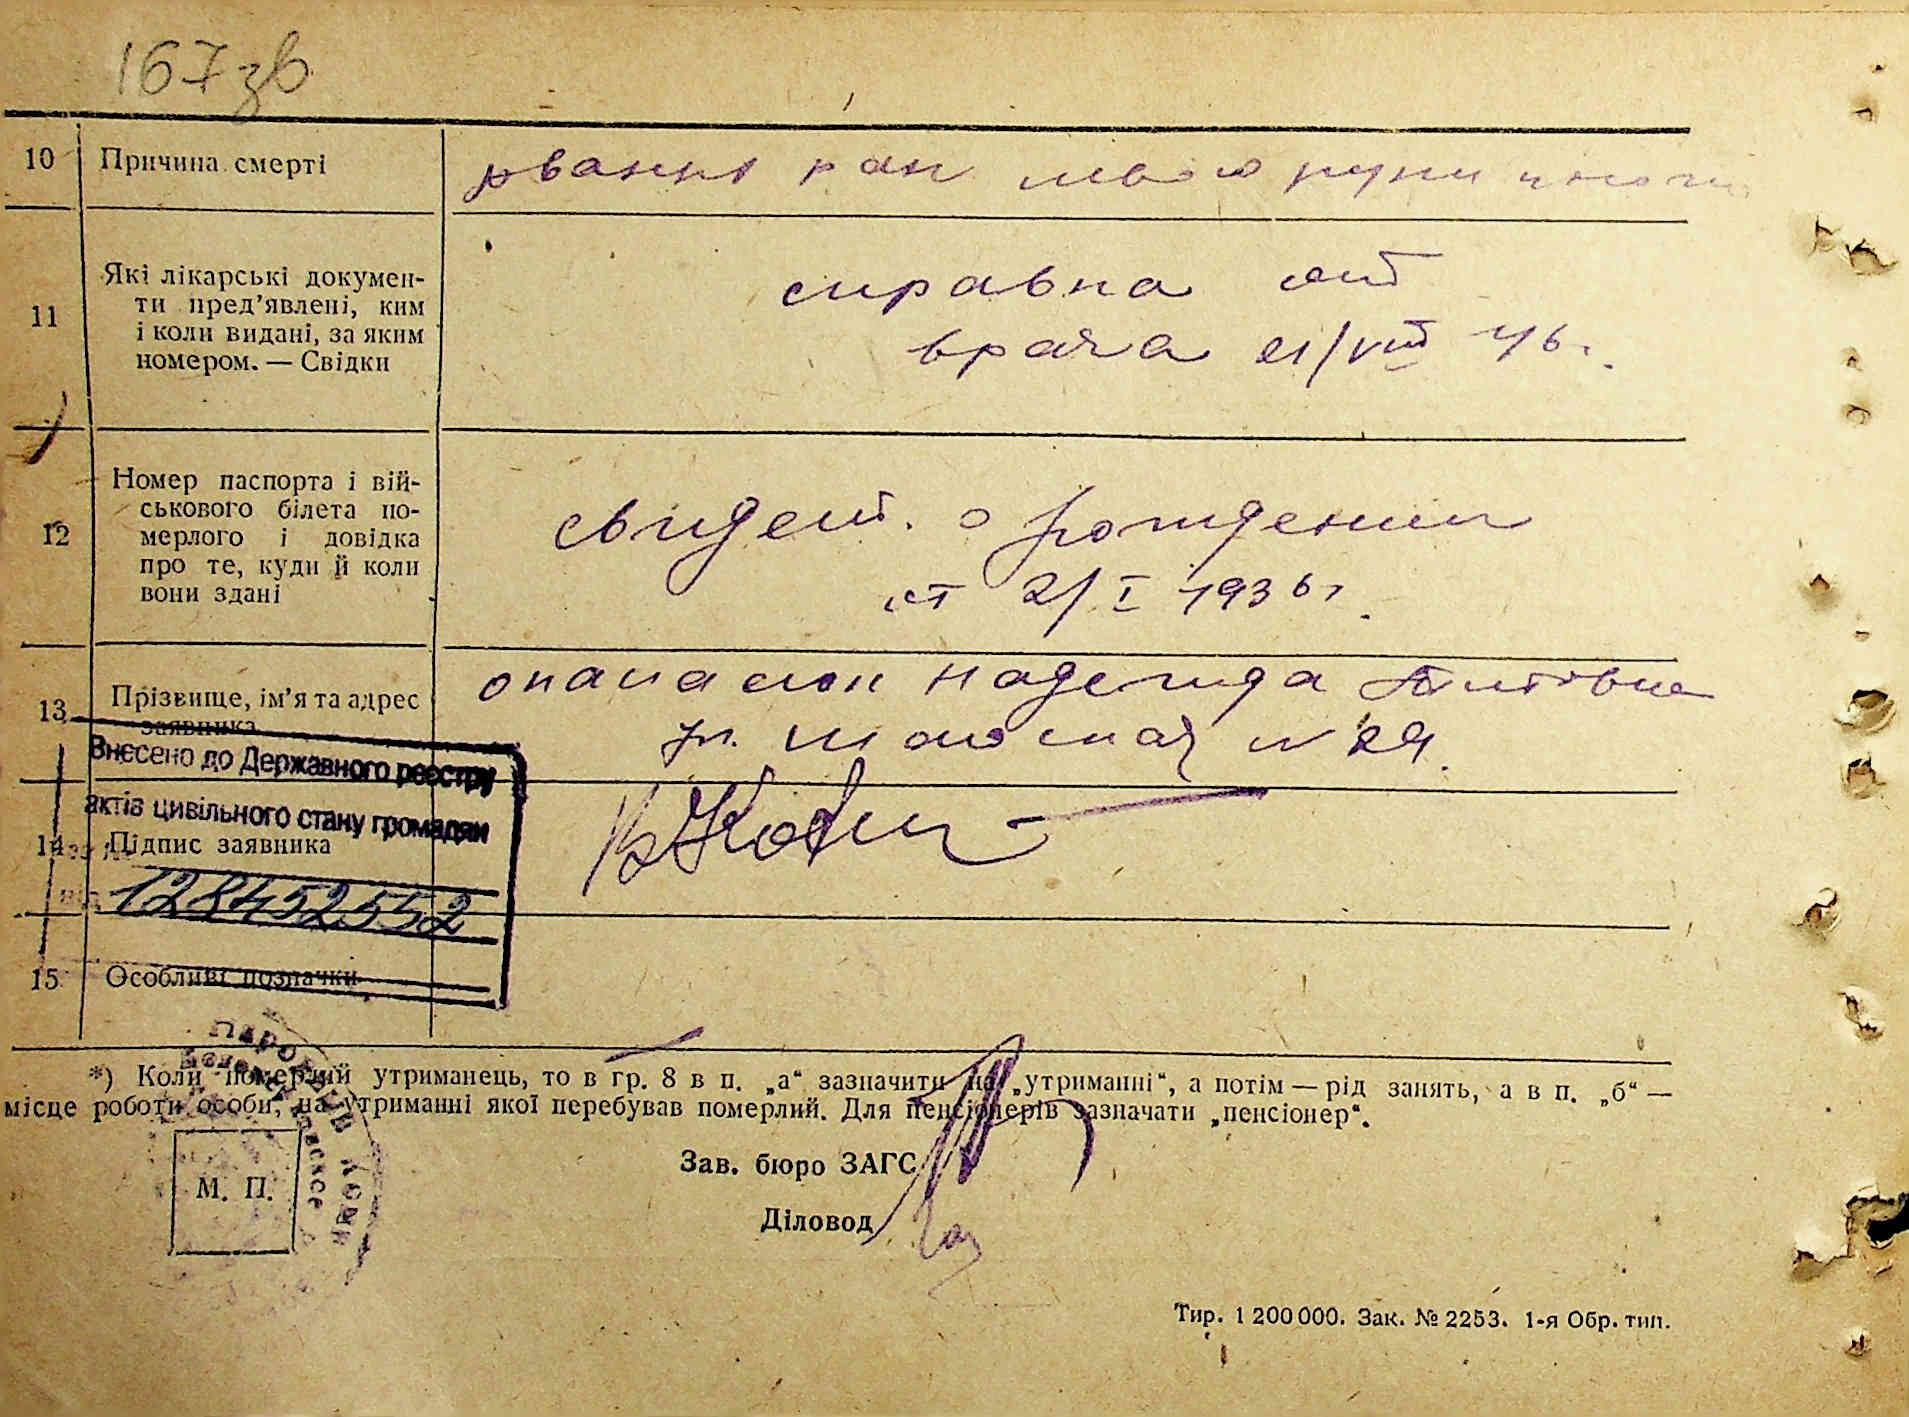 167зв
10 Причина смерті
рванных ран
11 Які лікарські докумен-
ти пред’явлені, ким
і коли видані, за яким
номером. — Свідки
справка от
врача 21/VIII 46.
12 Номер паспорта і вій-
ськового білета по-
мерлого і довідка
про те, куди й коли
вони здані
свидет. о рождении
от 2/I 1936 г.
13 Прізвище, ім’я та адрес
заявника
Надежда
ул. № 29.
Внесено до Державного реєстру
актів цивільного стану громадян
14 Підпис заявника
128452552
15 Особливі позначки
*) Коли померлий утриманець, то в гр. 8 в п. „а“ зазначити на „утриманні“, а потім — рід занять, а в п. „б“ —
місце роботи особи, на утриманні якої перебував померлий. Для пенсіонерів зазначати „пенсіонер“.
Зав. бюро ЗАГС
М. П.
Діловод
Тир. 1 200 000. Зак. № 2253. 1-я Обр. тип.